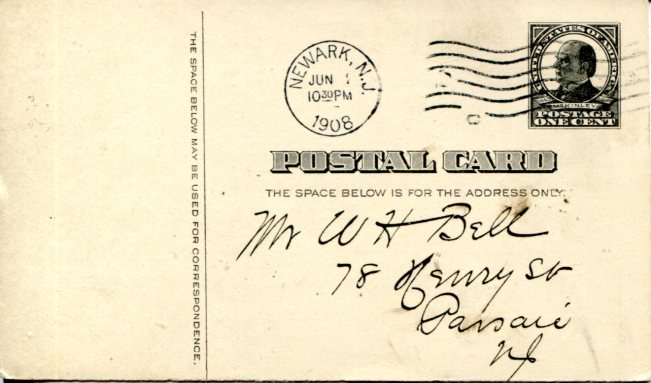 THE SPACE BELOW MAY BE USED FOR CORRESPONDENCE.
NEWARK, N.J.
JUN
10 30 PM
1908
UNITED STATES OF AMERICA
McKINLEY
POSTAGE
ONE CENT
POSTAL CARD
THE SPACE BELOW IS FOR THE ADDRESS ONLY.
Mr W H Bell
78 Henry St
Passaic
NJ